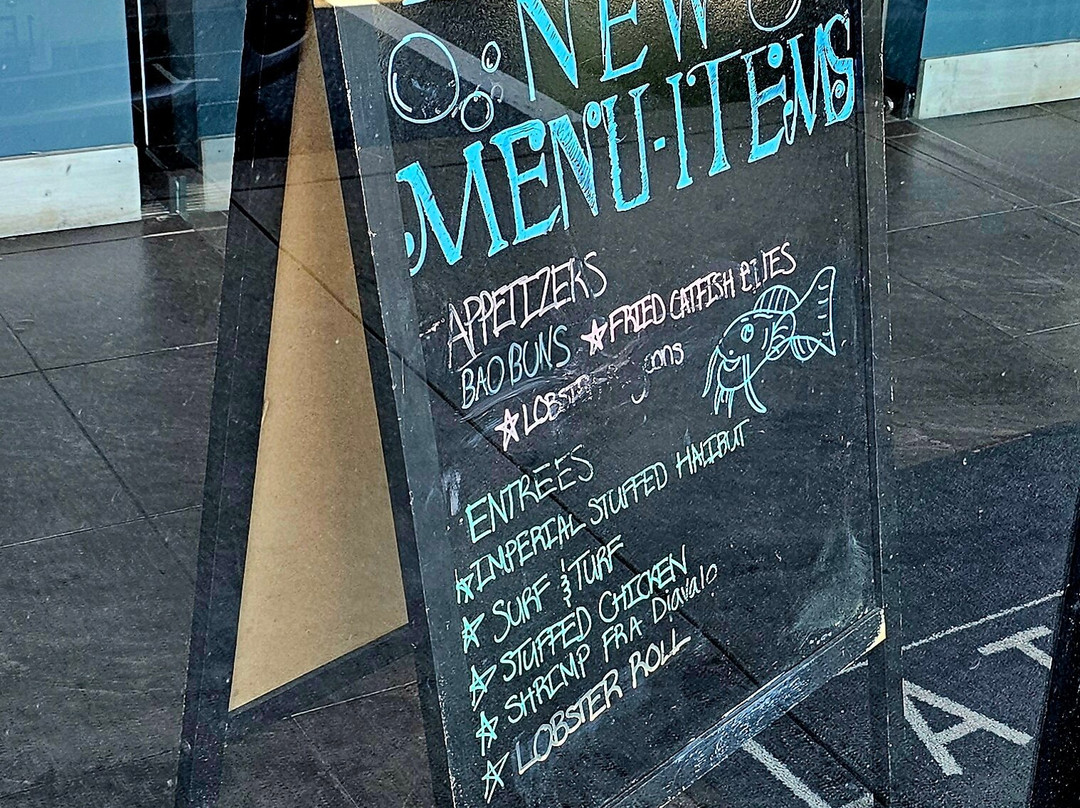 NEW
MENU-ITEMS
APPETIZERS
BAO BUNS ☆FRIED CATFISH BITES
☆LOBSTER
ENTREES
☆IMPERIAL STUFFED HALIBUT
☆SURF & TURF
☆STUFFED CHICKEN
☆SHRIMP FRA Diavalo
☆LOBSTER ROLL